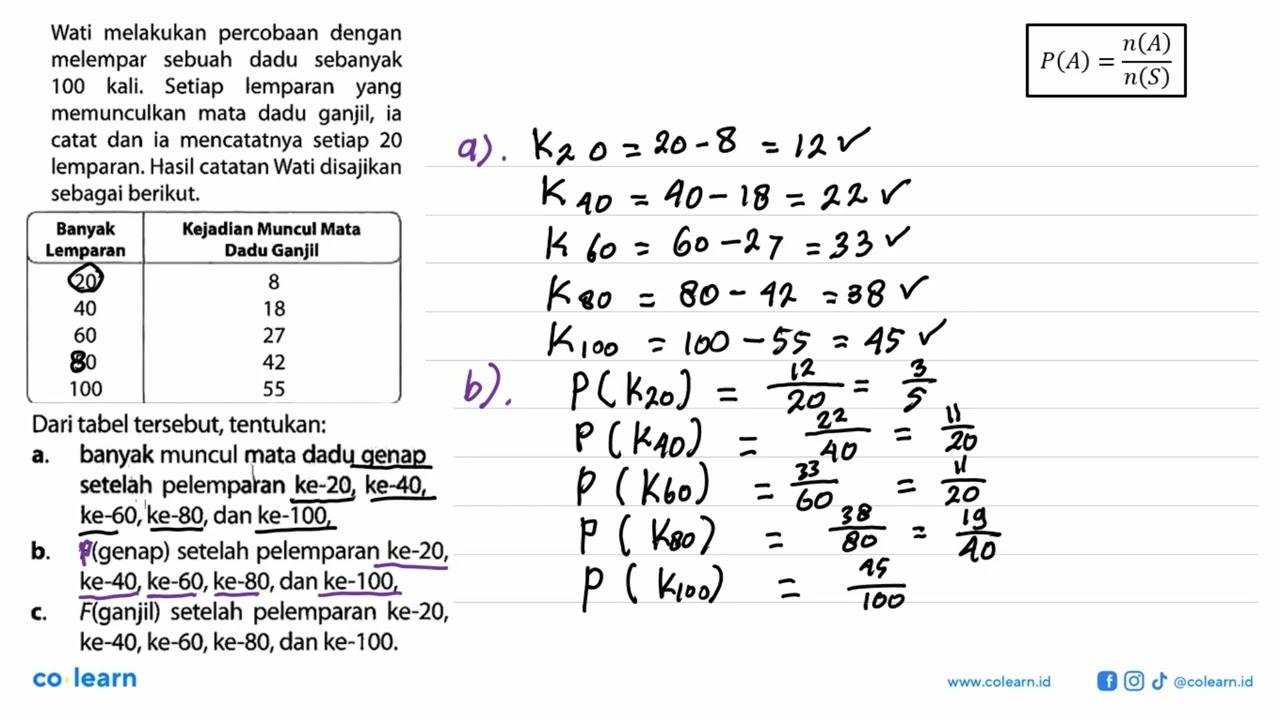 Wati melakukan percobaan dengan
melempar sebuah dadu sebanyak
100 kali. Setiap lemparan yang
memunculkan mata dadu ganjil, ia
catat dan ia mencatatnya setiap 20
lemparan. Hasil catatan Wati disajikan
sebagai berikut.
Banyak Lemparan | Kejadian Muncul Mata Dadu Ganjil
20 8
40 18
60 27
80 42
100 55
Dari tabel tersebut, tentukan:
a. banyak muncul mata dadu genap
setelah pelemparan ke-20, ke-40,
ke-60, ke-80, dan ke-100,
b. P(genap) setelah pelemparan ke-20,
ke-40, ke-60, ke-80, dan ke-100,
c. F(ganjil) setelah pelemparan ke-20,
ke-40, ke-60, ke-80, dan ke-100.
P(A) = n(A)/n(S)
a). K20 = 20 - 8 = 12 ✓
K40 = 40 - 18 = 22 ✓
K60 = 60 - 27 = 33 ✓
K80 = 80 - 42 = 38 ✓
K100 = 100 - 55 = 45 ✓
b). P(K20) = 12/20 = 3/5
P(K40) = 22/40 = 11/20
P(K60) = 33/60 = 11/20
P(K80) = 38/80 = 19/40
P(K100) = 45/100
co learn
www.colearn.id @colearn.id